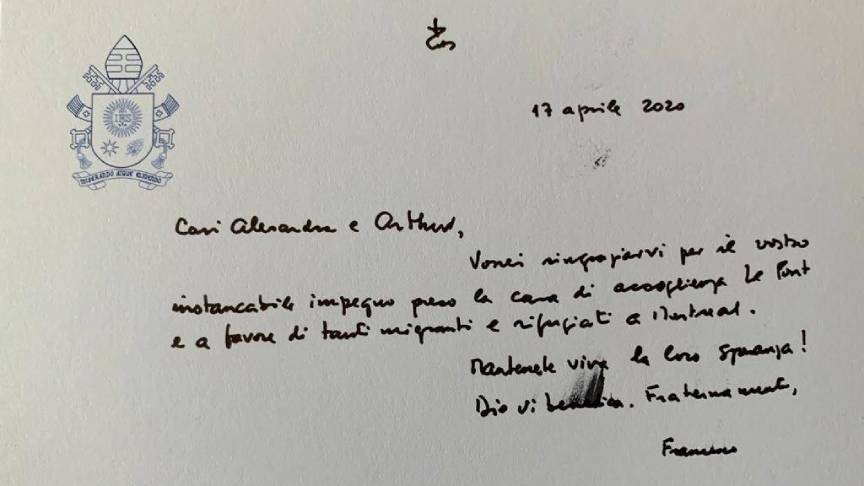 IHS
MISERANDO ATQUE ELIGENDO
17 aprile 2020
Cari Alexandra e Arthur,
Vorrei ringraziarvi per il vostro
instancabile impegno presso la casa di accoglienza Le Pont
e a favore di tanti migranti e rifugiati a Montreal.
Mantenete viva la loro speranza!
Dio vi benedica. Fraternamente,
Francesco